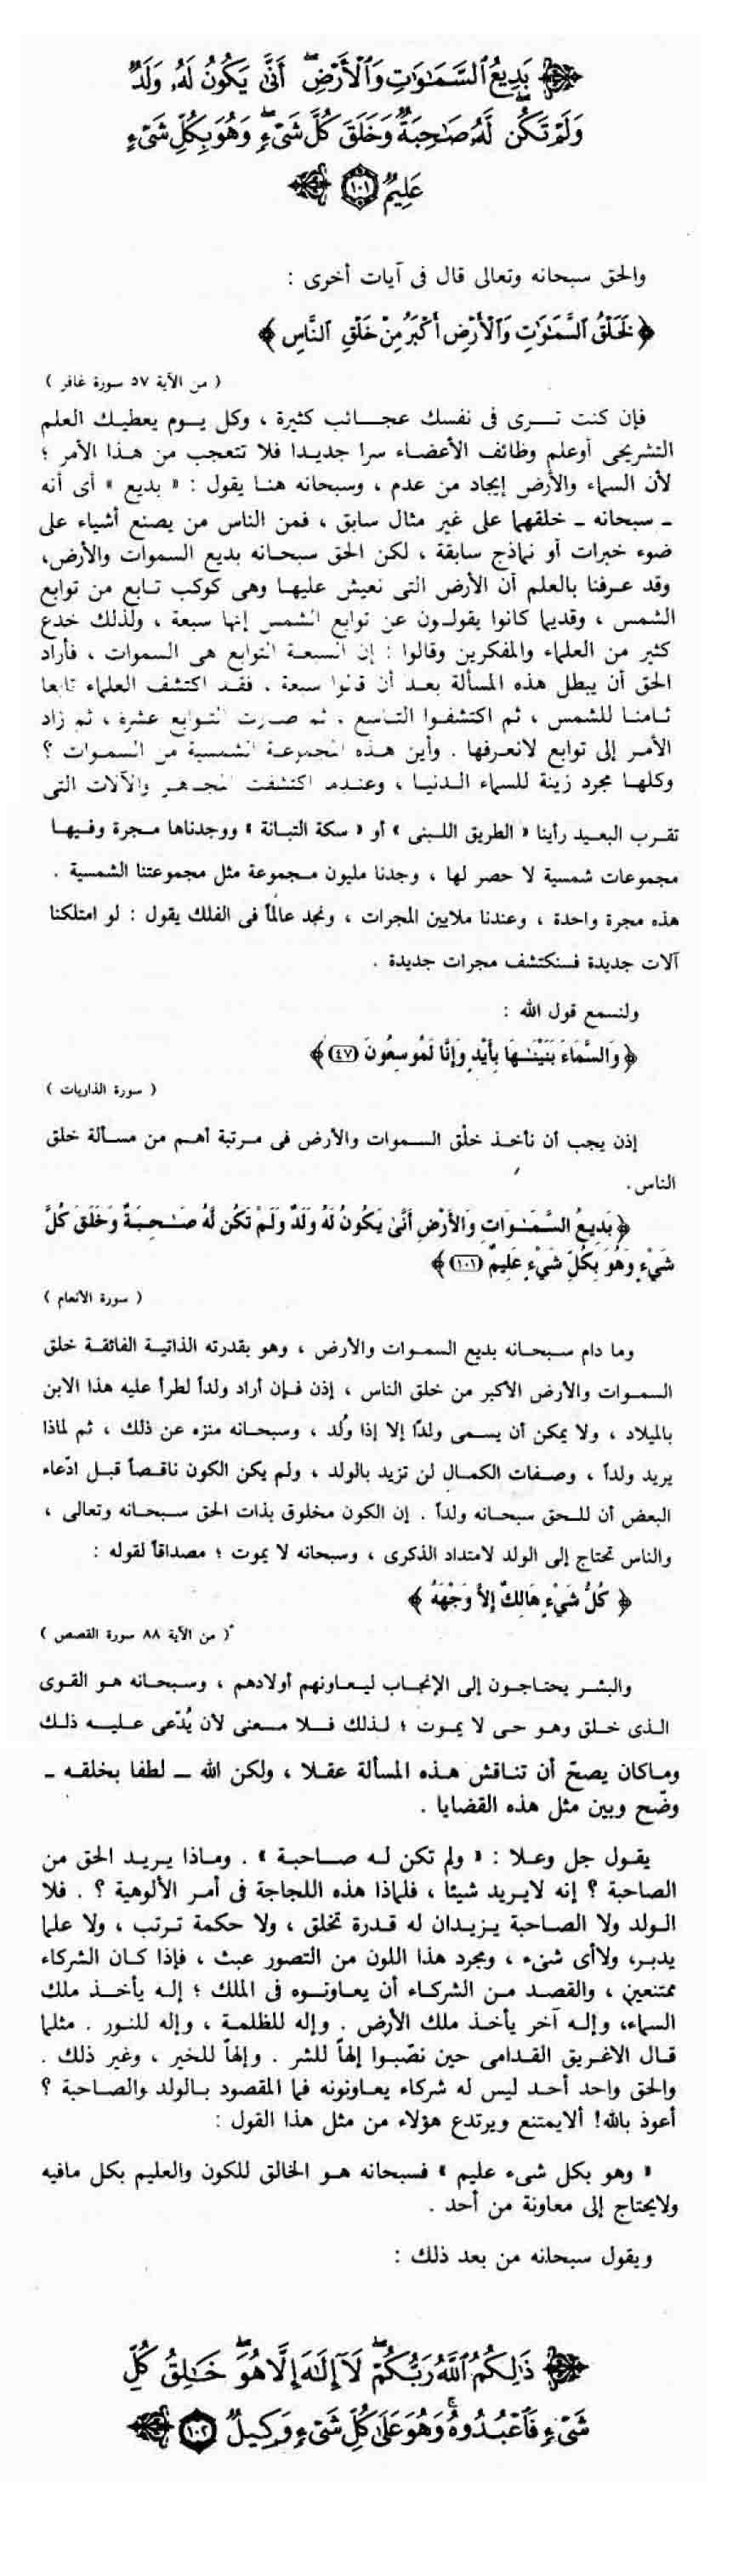 بَدِيعُ ٱلسَّمَٰوَٰتِ وَٱلْأَرْضِ ۖ أَنَّىٰ يَكُونُ لَهُۥ وَلَدٌ
وَلَمْ تَكُن لَّهُۥ صَٰحِبَةٌ ۖ وَخَلَقَ كُلَّ شَىْءٍ ۖ وَهُوَ بِكُلِّ شَىْءٍ
عَلِيمٌ ١٠١
والحق سبحانه وتعالى قال فى آيات أخرى :
﴿ لَخَلْقُ ٱلسَّمَٰوَٰتِ وَٱلْأَرْضِ أَكْبَرُ مِنْ خَلْقِ ٱلنَّاسِ ﴾
( من الآية ٥٧ سورة غافر )
فإن كنت تــرى فى نفسك عجــائب كثيرة ، وكل يــوم يعطيـك العلم
التشريحى أوعلم وظائف الأعضـاء سرا جديـدا فلا تتعجب من هـذا الأمر ؛
لأن السماء والأرض إيجاد من عدم ، وسبحانه هنـا يقول : « بديع » أى أنه
ـ سبحانه ـ خلقهما على غير مثال سابق ، فمن الناس من يصنع أشياء على
ضوء خبرات أو نماذج سابقة ، لكن الحق سبحـانه بديع السموات والأرض،
وقد عـرفنا بالعلم أن الأرض التى نعيش عليهـا وهى كوكب تـابع من توابع
الشمس ، وقديما كانوا يقولـون عن توابع الشمس إنها سبعة ، ولذلك خدع
كثير من العلماء والمفكرين وقالوا : إن السبعـة التوابع هى السموات ، فأراد
الحق أن يبطل هذه المسألة بعـد أن قالوا سبعة . فقـد اكتشف العلماء تابعا
ثـامنـا للشمس ، ثم اكتشفـوا التـاسع . ثم صـارت التـوابع عشرة ، ثم زاد
الأمـر إلى توابع لانعـرفها . وأين هـذه المجموعـة الشمسية من السمـوات ؟
وكلهـا مجرد زينة للسماء الـدنيـا ، وعنـدما اكتشفت المجـاهـر والآلات التى
تقـرب البعـيد رأينا « الطريق اللـبنى » أو « سكة التبـانة » ووجدناها مـجرة وفـيهـا
مجموعات شمسية لا حصر لها ، وجدنا مليون مـجموعة مثل مجموعتنا الشمسية .
هذه مجرة واحدة ، وعندنا ملايين المجرات ، ونجد عالماً فى الفلك يقول : لو امتلكنا
آلات جديدة فسنكتشف مجرات جديدة .
ولنسمع قول الله :
﴿ وَالسَّمَاءَ بَنَيْنَـٰـهَا بِأَيْدٍ وَإِنَّا لَمُوسِعُونَ (٤٧) ﴾
( سورة الذاريات )
إذن يجب أن نأخـذ خلْق السـموات والأرض فى مـرتبة أهـم من مسـألة خلق
الناس.
﴿ بَدِيعُ السَّمَـٰـوَاتِ وَالأَرْضِ أَنَّىٰ يَكُونُ لَهُ وَلَدٌ وَلَمْ تَكُن لَّهُ صَـٰـحِبَةٌ وَخَلَقَ كُلَّ
شَيْءٍ وَهُوَ بِكُلِّ شَيْءٍ عَلِيمٌ (١٠١) ﴾
( سورة الأنعام )
وما دام سـبحـانه بديع السمـوات والأرض ، وهو بقدرته الذاتيـة الفائقـة خلق
السمـوات والأرض الأكبر من خلق الناس ، إذن فـإن أراد ولداً لطرأ عليه هذا الابن
بالميلاد ، ولا يمكن أن يسـمى ولدًا إلا إذا وُلد ، وسبحـانه منزه عن ذلك ، ثم لماذا
يريد ولداً ، وصـفات الكمـال لن تزيد بالولد ، ولم يكن الكون ناقـصاً قبـل ادّعاء
البعض أن للـحق سبحـانه ولداً . إن الكون مخلوق بذات الحق سـبحـانه وتعالى ،
والناس تحتاج إلى الولد لامتداد الذكرى ، وسبحانه لا يموت ؛ مصداقاً لقوله :
﴿ كُلُّ شَيْءٍ هَالِكٌ إِلاَّ وَجْهَهُ ﴾
( من الآية ٨٨ سورة القصص )
والبشـر يحتـاجـون إلى الإنجـاب ليـعـاونهم أولادهم ، وسـبحـانه هـو القـوى
الـذى خـلق وهـو حى لا يمـوت ؛ لـذلك فـلا مـعنى لأن يُدّعى عـليـه ذلـك
ومـاكان يصحّ أن تنـاقش هـذه المسألة عقـلا ، ولكن الله ــ لطفا بخلقـه ــ
وضّح وبين مثل هذه القضايا .
يقـول جل وعـلا : « ولم تكن لـه صـاحبة » . ومـاذا يـريـد الحق من
الصاحبة ؟ إنه لايـريد شيئا ، فلماذا هذه اللجاجة فى أمـر الألوهية ؟ . فلا
الـولد ولا الصـاحبة يـزيـدان له قـدرة تخلق ، ولا حكمة تـرتب ، ولا علما
يدبـر، ولاأى شىء ، ومجرد هذا اللون من التصور عبث ، فإذا كـان الشركاء
ممتنعين ، والقصـد مـن الشركـاء أن يعـاونـوه فى الملك ؛ إلـه يأخـذ ملك
السماء، وإلـه آخر يأخـذ ملك الأرض . وإله للظلمـة ، وإله للنـور . مثلما
قـال الاغـريق القـدامى حين نصّبـوا إلهاً للشر . وإلهاً للخير ، وغير ذلك .
والحق واحد أحـد ليس له شركاء يعـاونونه فما المقصود بـالولد والصـاحبة ؟
أعوذ بالله! ألايمتنع ويرتدع هؤلاء من مثل هذا القول :
« وهو بكل شىء عليم » فسبحانه هـو الخالق للكون والعليم بكل مافيه
ولايحتاج إلى معاونة من أحد .
ويقول سبحانه من بعد ذلك :
ذَٰلِكُمُ ٱللَّهُ رَبُّكُمْ ۖ لَآ إِلَٰهَ إِلَّا هُوَ ۖ خَٰلِقُ كُلِّ
شَىْءٍ فَٱعْبُدُوهُ ۚ وَهُوَ عَلَىٰ كُلِّ شَىْءٍ وَكِيلٌ ١٠٢